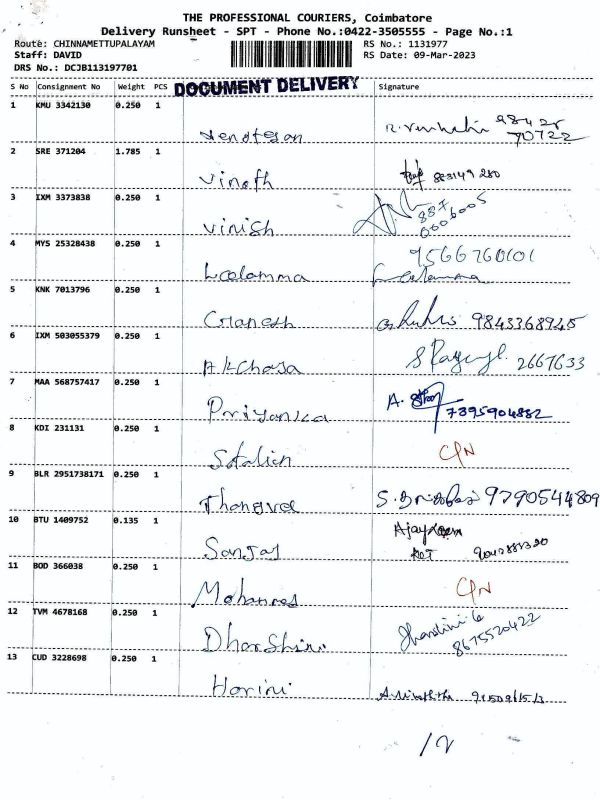 THE PROFESSIONAL COURIERS, Coimbatore
Delivery Runsheet - SPT - Phone No.:0422-3505555 - Page No.:1
Route: CHINNAMETTUPALAYAM RS No.: 1131977
Staff: DAVID RS Date: 09-Mar-2023
DRS No.: DCJB113197701
DOCUMENT DELIVERY
S No Consignment No Weight PCS Signature
1 KMU 3342130 0.250 1
98428
70722
2 SRE 371204 1.785 1
Vinoth
3 IXM 3373838 0.250 1
Vinish 887
0006005
4 MYS 25328438 0.250 1
9566760101
Leelamma
5 KNK 7013796 0.250 1
Ganesh 9843368945
6 IXM 503055379 0.250 1
2667633
7 MAA 568757417 0.250 1
Priyanka A. 7395904882
8 KDI 231131 0.250 1
Stalin C/N
9 BLR 2951738171 0.250 1
Thangavel 9790544809
10 BTU 1409752 0.135 1
Sanjay
11 BOD 366038 0.250 1
Mohammed C/N
12 TVM 4678168 0.250 1
Dharshini 8675520422
13 CUD 3228698 0.250 1
Harini